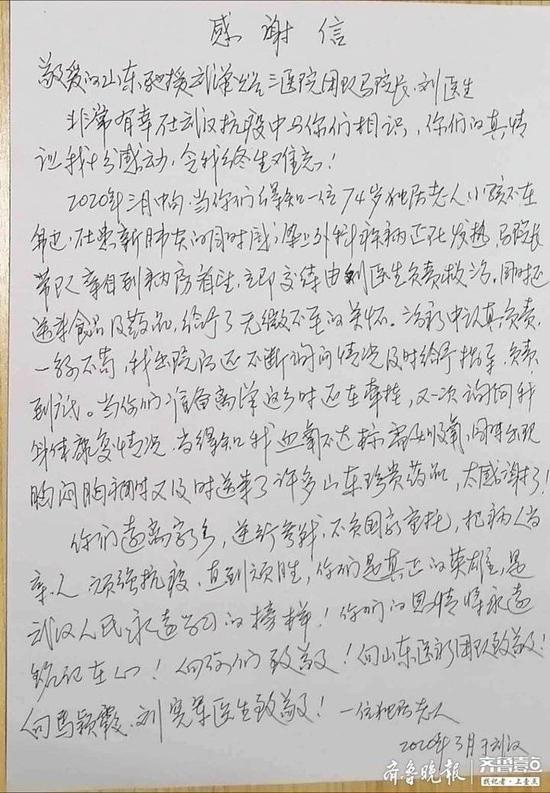 感谢信
敬爱的山东驰援武汉 三医院团队马院长、刘医生
非常有幸在武汉抗疫中与你们相识，你们的真情
让我十分感动，令我终生难忘！
2020年三月中旬，当你们得知一位74岁独居老人，小孩不在
身边，在患新肺炎的同时感染上外科疾病正在发热，马院长
带队亲自到病房看望，立即交待由刘医生负责救治。同时还
送来食品及药品，给予了无微不至的关怀。治疗中认真负责，
一丝不苟，我出院后还不断询问情况及时给予指导，负责
到底。当你们准备离汉返乡时还在牵挂，又一次询问我
身体康复情况。当得知我血氧不达标需要吸氧，同时出现
胸闷胸 时又及时送来了许多山东珍贵药品，太感谢了！
你们远离家乡，逆行参战，不负国家重托，把病人当
亲人，顽强抗疫，直到领胜，你们是真正的英雄，是
武汉人民永远学习的榜样！你们的恩情将永远
铭记在心！向你们致敬！向山东医疗团队致敬！
向马颖霞、刘 军医生致敬！ 一位独居老人
2020年3月于武汉
齐鲁晚报 齐鲁壹点
找记者·上壹点